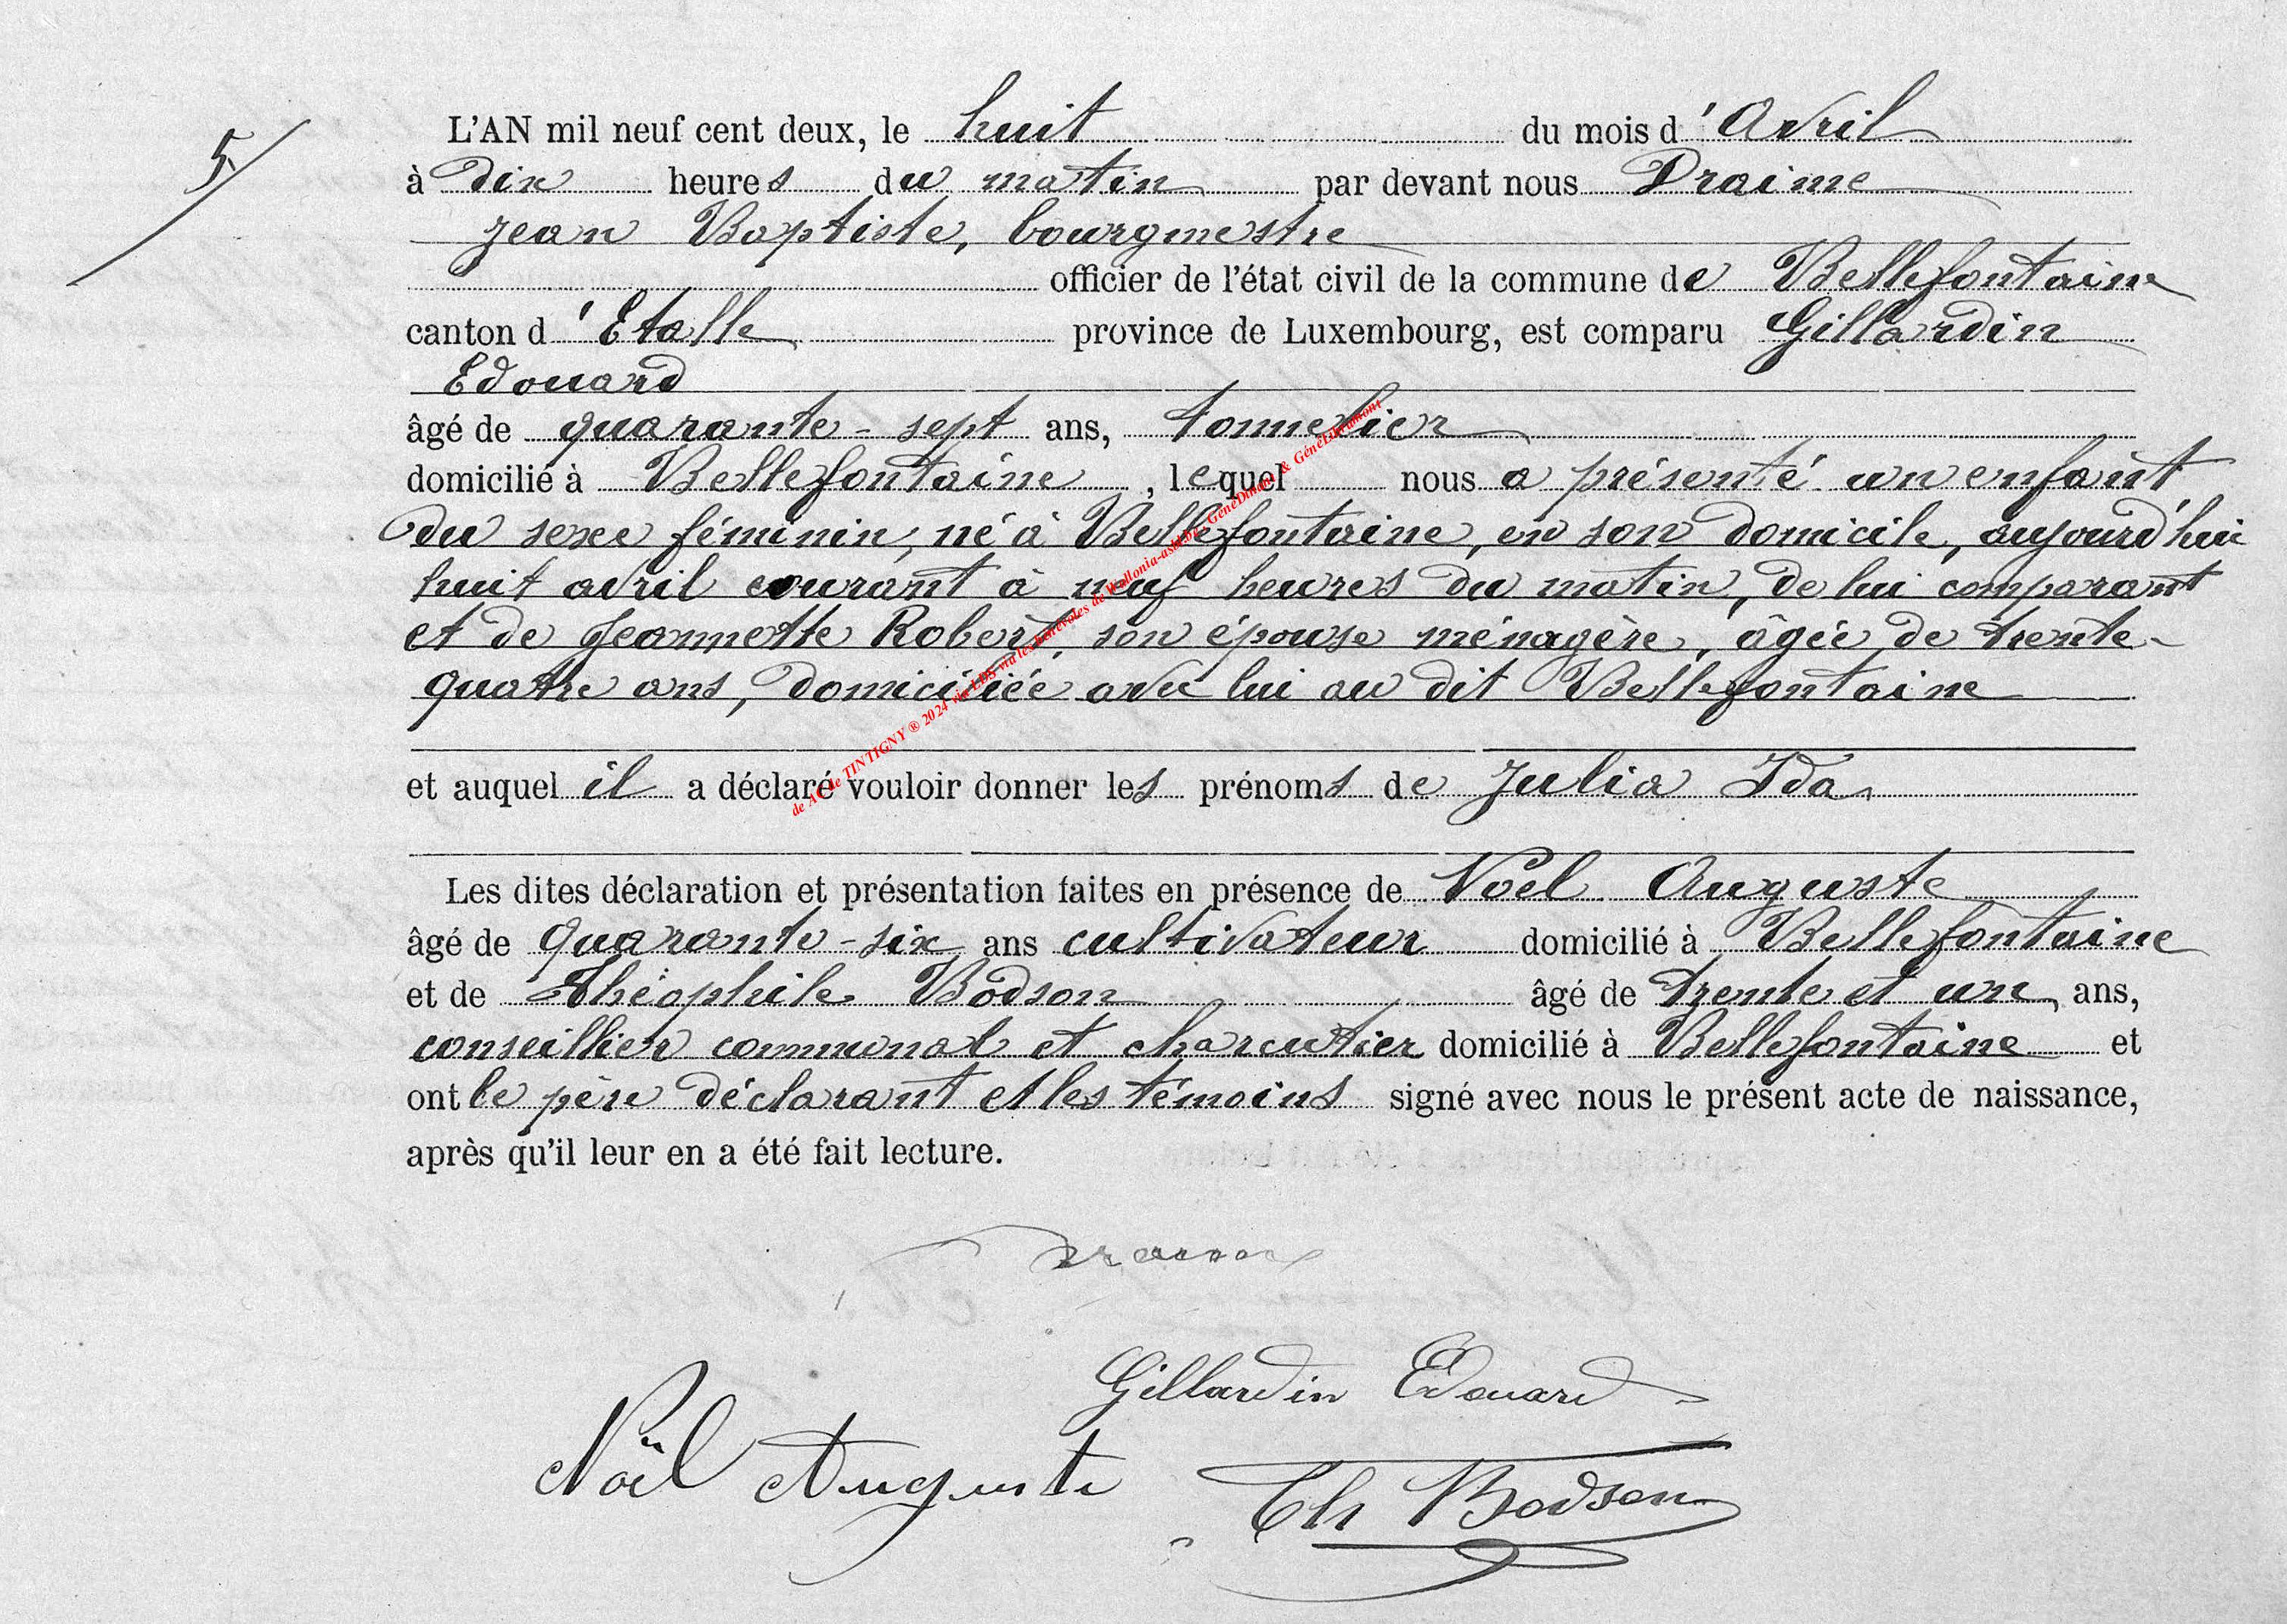 5/
L'AN mil neuf cent deux, le huit du mois d'Avril
à dix heures du matin par devant nous Draime
Jean Baptiste, bourgmestre
officier de l'état civil de la commune de Bellefontaine
canton d'Etalle province de Luxembourg, est comparu Gillardin
Edouard
âgé de quarante-sept ans, tonnelier
domicilié à Bellefontaine, lequel nous a présenté un enfant
du sexe féminin, né à Bellefontaine, en son domicile, aujourd'hui
huit avril courant à neuf heures du matin, de lui comparant
et de Jeannette Robert, son épouse ménagère, âgée de trente-
quatre ans, domiciliée avec lui au dit Bellefontaine
et auquel il a déclaré vouloir donner les prénoms de Julia Ida
Les dites déclaration et présentation faites en présence de Noël Auguste
âgé de quarante-six ans cultivateur domicilié à Bellefontaine
et de Théophile Bodson âgé de trente et un ans,
conseillier communal et charcutier domicilié à Bellefontaine et
ont le père déclarant et les témoins signé avec nous le présent acte de naissance,
après qu'il leur en a été fait lecture.
Draime
Gillardin Edouard
Noël Auguste Th Bodson
de AC de TINTIGNY ® 2024 via LDS via les bénévoles de Wallonia-asbl by GénéDinant & GénéLibramont